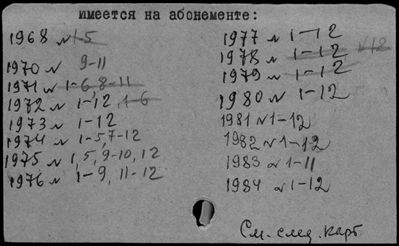 имеется на абонементе:
1968 № 1-5
1970 № 9-11
1971 № 1-6, 8-11
1972 № 1-12, 1-6
1973 № 1-12
1974 № 1-5, 7-12
1975 № 1, 5, 9-10, 12
1976 № 1-9, 11-12
1977 № 1-12
1978 № 1-12 №12
1979 № 1-12
1980 № 1-12
1981 №1-12
1982 №1-12
1983 № 1-11
1984 № 1-12
См. след. карт